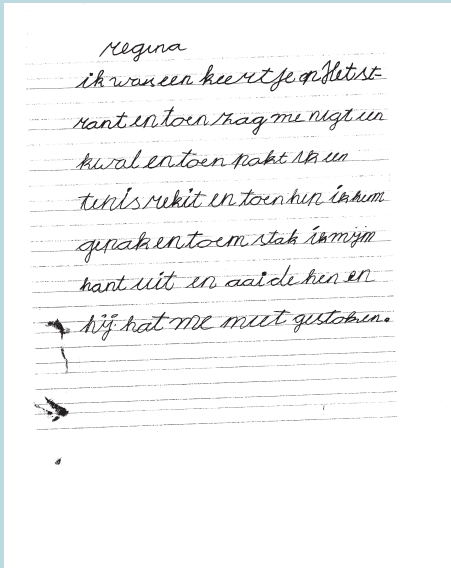 regina
ik was een keertje op Het st-
rant en toen zag me nigt een
kwal en toen pakt ik een
tenis rekit en toen hep ik hem
gepak en toem stak ik mijn
hant uit en aaide hen en
hij hat me meet gestoken.